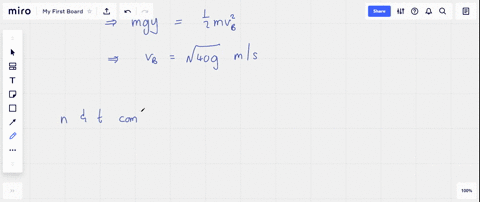 miro My First Board Share
⇒ mgy = 1/2 mv_B^2
⇒ v_B = √40g m/s
n & t com
100%